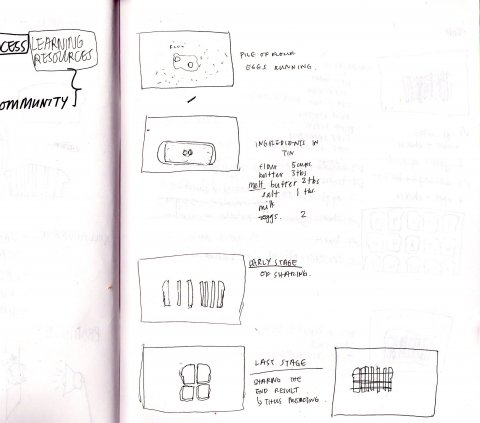 CESS
LEARNING
RESOURCES
OMMUNITY
PILE OF FLOUR
EGGS RUNNING.
INGREDIENTS IN
TIN
flour 5 cups
butter 3 tbs
melt butter 2 tbs
salt 1 tbs
milk
eggs. 2
EARLY STAGE
OF SHARING.
LAST STAGE
SHARING THE
END RESULT
THUS MERGING.